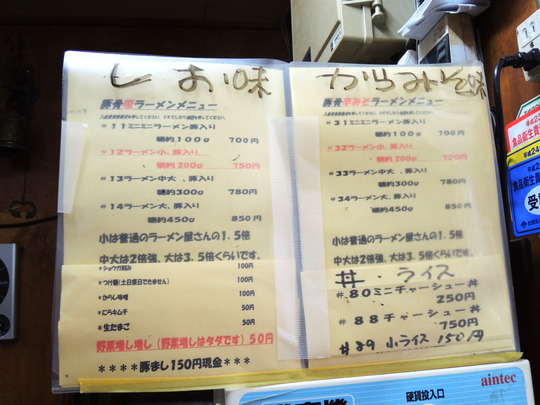 しお味
豚骨塩ラーメンメニュー
#11ミニミニラーメン豚入り
麺約100g 700円
#12ラーメン小、豚入り
麺約200g 750円
#13ラーメン中大、豚入り
麺約300g 780円
#14ラーメン大、豚入り
麺約450g 850円
小は普通のラーメン屋さんの1.5倍
中大は2倍強、大は3.5倍くらいです。
100円
*つけ麺(土日祭日できません) 100円
*からし味噌 100円
*にらキムチ 50円
*生たまご 50円
野菜増し増し(野菜増しはタダです)50円
****豚まし150円現金****
からみそ味
豚骨辛みそラーメンメニュー
#31ミニミニラーメン豚入り
麺約100g 700円
#32ラーメン小、豚入り
麺約200g 750円
#33ラーメン中大、豚入り
麺約300g 780円
#34ラーメン大、豚入り
麺約450g 850円
小は普通のラーメン屋さんの1.5倍
中大は2倍強、大は3.5倍くらいです。
丼・ライス
#80ミニチャーシュー丼
250円
#88チャーシュー丼
750円
#89小ライス150円
aintec
硬貨投入口